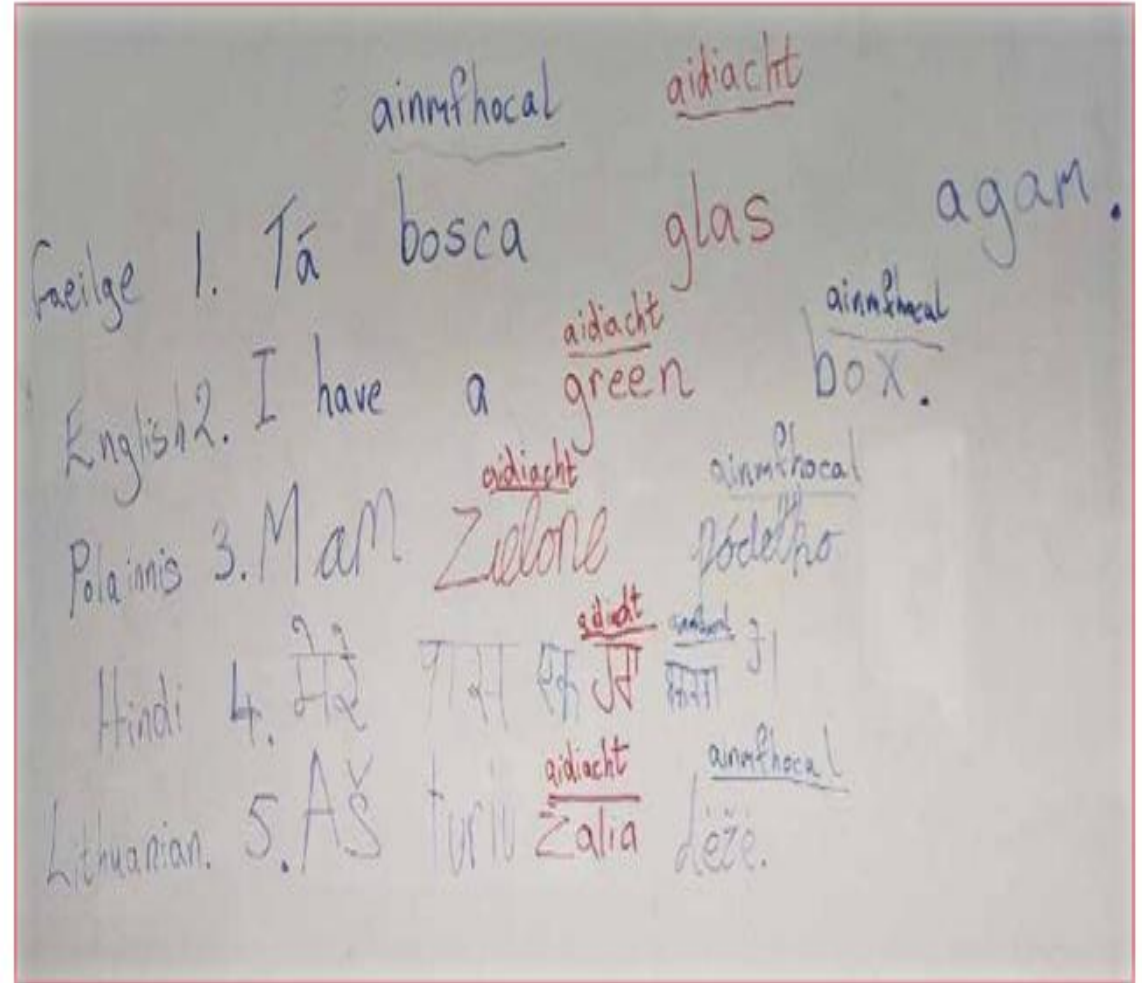 ainmfhocal aidiacht
Gaeilge 1. Tá bosca glas agam.
aidiacht ainmfhocal
English 2. I have a green box.
aidiacht ainmfhocal
Polainnis 3. Mam Zielone pódełko
aidiacht ainmfhocal
Hindi 4. मेरे पास एक
aidiacht ainmfhocal
Lithuanian. 5. Aš turiu Žalia dėžė.